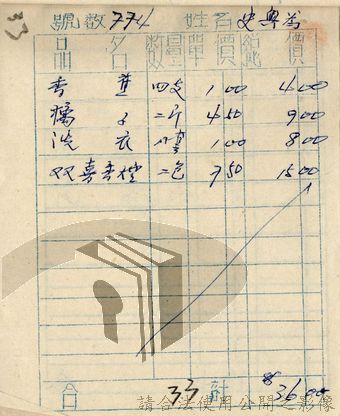 號数 774 姓名 史
品名 數量 單價 總價
香蕉 四支 1 00 4 00
橘子 二斤 4 50 9 00
洗衣 八 1 00 8 00
双喜香烟 二包 7 50 15 00
合 33 計 $36 00
請合法使用公開之影像